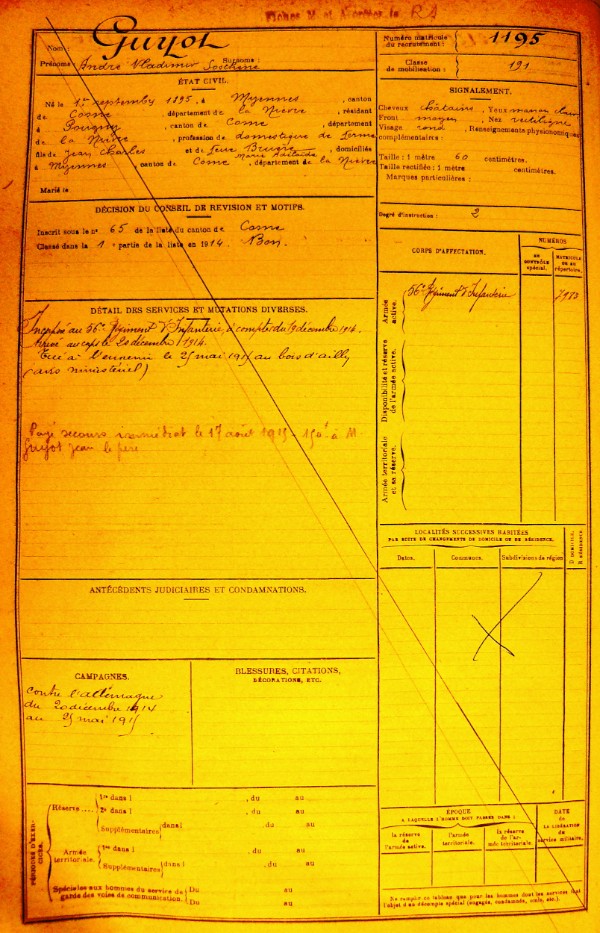 Nom : Guyot
Numéro matricule du recrutement : 1195
Prénoms : André Vladimir Surnoms :
Classe de mobilisation : 191
ÉTAT CIVIL.
Né le 1er septembre 1895, à Myennes, canton
de Cosne, département de la Nièvre, résidant
à , canton de Cosne, département
de la Nièvre, profession de domestique de ferme
fils de Jean Charles et de feue Brugre Marie, domiciliés
à Myennes canton de Cosne, département de la Nièvre
Marié le
SIGNALEMENT.
Cheveux châtains, Yeux marron clair
Front moyen, Nez rectiligne
Visage rond, Renseignements physionomiques
complémentaires :
Taille : 1 mètre 60 centimètres.
Taille rectifiée : 1 mètre centimètres.
Marques particulières :
Degré d'instruction : 2
DÉCISION DU CONSEIL DE REVISION ET MOTIFS.
Inscrit sous le n° 65 de la liste du canton de Cosne
Classé dans la 1e partie de la liste en 1914. Bon.
CORPS D'AFFECTATION.
NUMÉROS
AU CONTRÔLE spécial.
MATRICULE OU AU répertoire.
Armée active.
56e Régiment d'Infanterie
Disponibilité et réserve de l'armée active.
Armée territoriale et sa réserve.
DÉTAIL DES SERVICES ET MUTATIONS DIVERSES.
Incorporé au 56e Régiment d'Infanterie à compter du 19 décembre 1914.
Arrivé au corps le 20 décembre 1914.
Tué à l'ennemi le 25 mai 1915 au bois d'ailly
(avis ministériel)
Payé secours immédiat le 17 août 1915 150f à M.
Guyot Jean le père
LOCALITÉS SUCCESSIVES HABITÉES
PAR SUITE DE CHANGEMENTS DE DOMICILE OU DE RÉSIDENCE.
Dates.
Commune.
Subdivisions de région
D domicile,
R résidence.
ANTÉCÉDENTS JUDICIAIRES ET CONDAMNATIONS.
CAMPAGNES.
Contre l'allemagne
du 20 décembre 1914
au 25 mai 1915
BLESSURES, CITATIONS,
DÉCORATIONS, ETC.
PÉRIODES D'EXERCICES.
Réserve
1re dans l , du au
2e dans l , du au
Supplémentaires dans l , du au
Armée territoriale.
1re dans l , du au
Supplémentaires dans l , du au
Spéciales aux hommes du service de
garde des voies de communication.
Du au
Du au
ÉPOQUE
A LAQUELLE L'HOMME DOIT PASSER DANS :
la réserve de l'armée active.
l'armée territoriale.
la réserve de l'armée territoriale.
DATE
DE LA LIBÉRATION
du service militaire.
Ne remplir ce tableau que pour les hommes dont les services font
l'objet d'un décompte spécial (engagés, condamnés, omis, etc.).